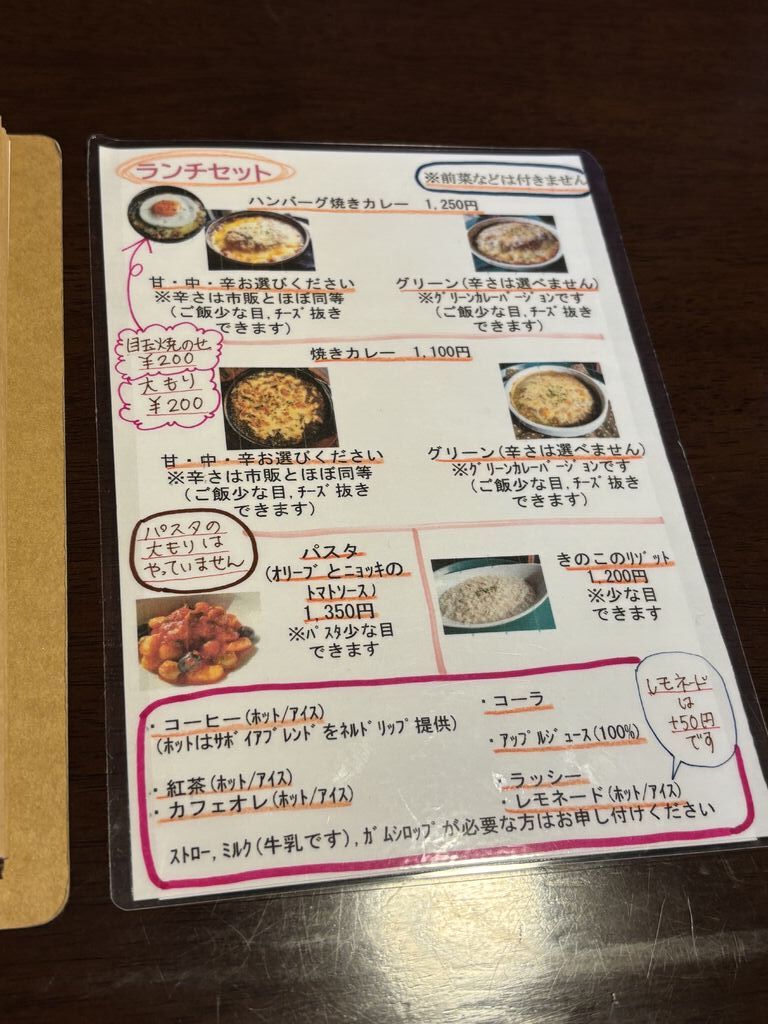 ランチセット
※前菜などは付きません
ハンバーグ焼きカレー 1,250円
甘・中・辛お選びください
※辛さは市販とほぼ同等
(ご飯少な目,チーズ抜き
できます)
グリーン(辛さは選べません)
※グリーンカレーバージョンです
(ご飯少な目,チーズ抜き
できます)
目玉焼のせ
¥200
大もり
¥200
焼きカレー 1,100円
甘・中・辛お選びください
※辛さは市販とほぼ同等
(ご飯少な目,チーズ抜き
できます)
グリーン(辛さは選べません)
※グリーンカレーバージョンです
(ご飯少な目,チーズ抜き
できます)
パスタの
大もりは
やっていません
パスタ
(オリーブとニョッキの
トマトソース)
1,350円
※パスタ少な目
できます
きのこのリゾット
1,200円
※少な目
できます
・コーヒー(ホット/アイス)
(ホットはサボイアブレンドをネルドリップ提供)
・紅茶(ホット/アイス)
・カフェオレ(ホット/アイス)
・コーラ
・アップルジュース(100%)
・ラッシー
・レモネード(ホット/アイス)
レモネード
は
+50円
です
ストロー,ミルク(牛乳です),ガムシロップが必要な方はお申し付けください